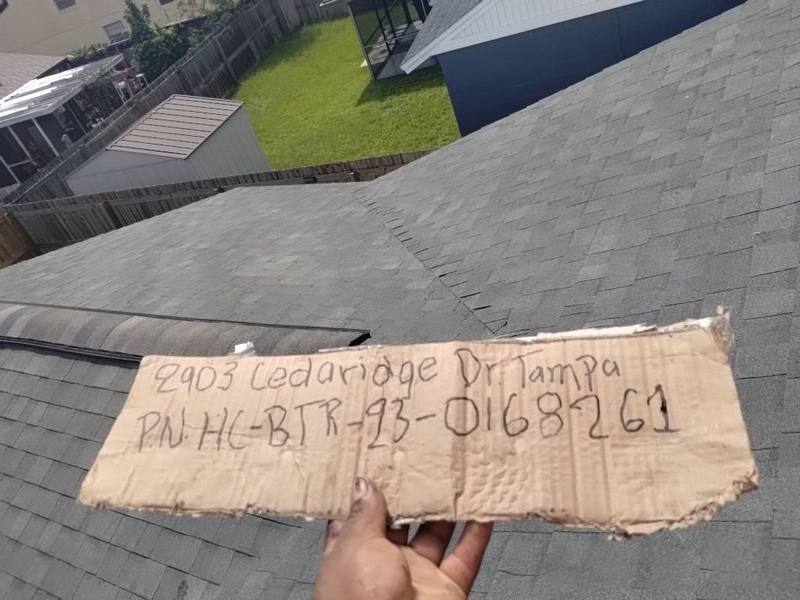 2903 Cedaridge Dr. Tampa
P.N. HC-BTR-23-0168261